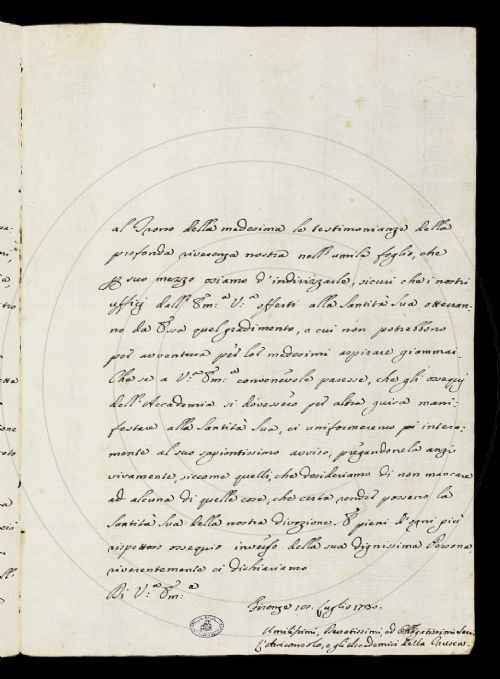 al Trono della medesima le testimonianze della
profonda riverenza nostra nell'umile foglio, che
per suo mezzo osiamo d'indirizzarle, sicuri che i nostri
uffizj dall'Em:ª V:ª offerti alla Santità Sua otterran-
no da Essa quel gradimento, a cui non potrebbono
per avventura per loro medesimi aspirare giammai.
Che se a V:ª Em:ª convenevole paresse, che gli ossequj
dell'Accademia si dovessero per altra guisa mani-
festare alla Santità Sua, ci uniformeremo poi intera-
mente al suo sapientissimo avviso, pregandonela anzi
vivamente, siccome quelli, che desideriamo di non mancare
ad alcuna di quelle cose, che certa render possano la
Santità Sua della nostra divozione. E pieni d'ogni più
rispettoso ossequio inverso della sua dignissima Persona,
riverentemente ci dichiariamo
Di V:ª Em:ª
Firenze Luglio 1730.
Umilissimi, Devotissimi, ed
L'Arciconsolo, e gli Accademici della Crusca.